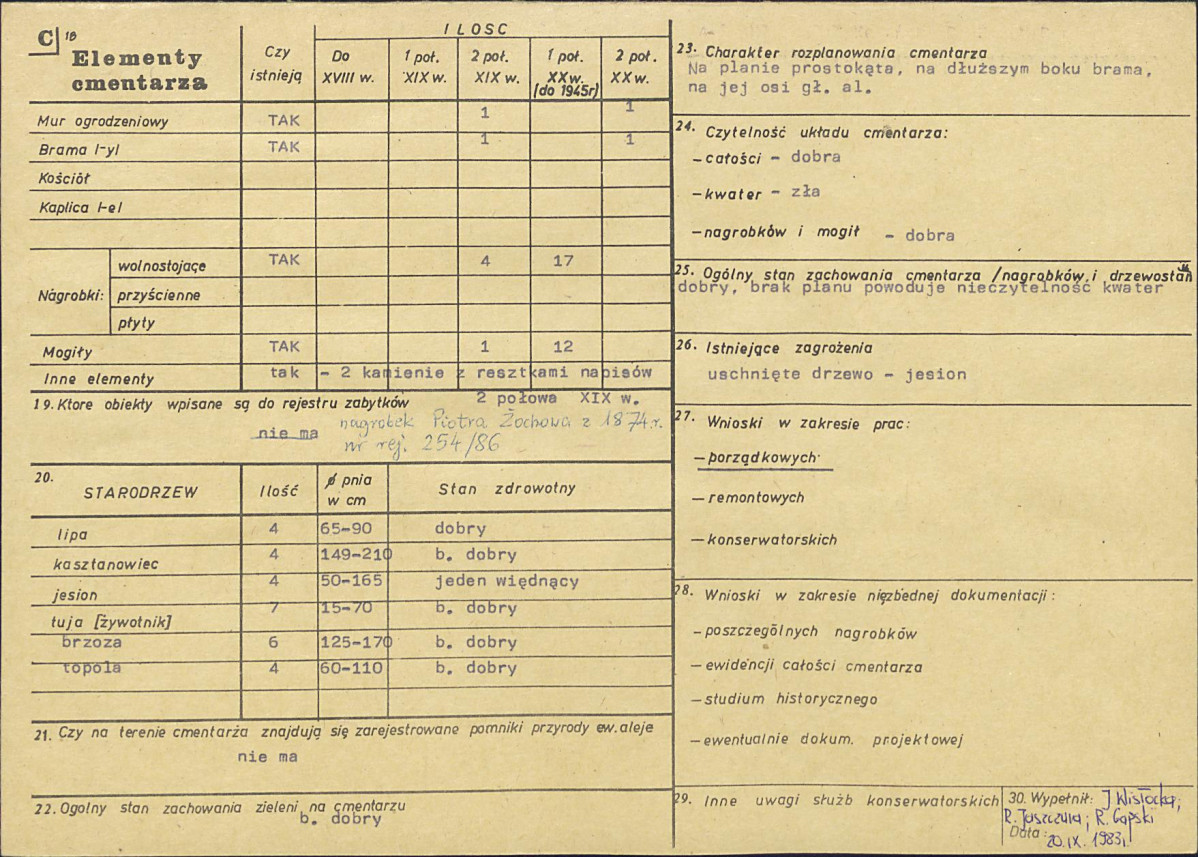 C 18
Elementy cmentarza
Czy istnieją
ILOSC
Do XVIII w.
1 poł. XIX w.
2 poł. XIX w.
1 poł. XX w. (do 1945r)
2 poł. XX w.
Mur ogrodzeniowy TAK 1 1
Brama /-y/ TAK 1 1
Kościół
Kaplica /-e/
Nagrobki:
wolnostojące TAK 4 17
przyścienne
płyty
Mogiły TAK 1 12
Inne elementy tak - 2 kamienie z resztkami napisów
2 połowa XIX w.
19. Ktore obiekty wpisane są do rejestru zabytków
nie ma nagrobek Piotra Żochowa z 1874 r.
nr rej. 254/86
20. STARODRZEW Ilość ø pnia w cm Stan zdrowotny
lipa 4 65-90 dobry
kasztanowiec 4 149-210 b. dobry
jesion 4 50-165 jeden więdnący
tuja [żywotnik] 7 15-70 b. dobry
brzoza 6 125-170 b. dobry
topola 4 60-110 b. dobry
21. Czy na terenie cmentarża znajdują się zarejestrowane pomniki przyrody ew. aleje
nie ma
22. Ogolny stan zachowania zieleni na cmentarzu
b. dobry
23. Charakter rozplanowania cmentarza
Na planie prostokąta, na dłuższym boku brama,
na jej osi gł. al.
24. Czytelność układu cmentarza:
- całości - dobra
- kwater - zła
- nagrobków i mogił - dobra
25. Ogólny stan zachowania cmentarza /nagrobków i drzewostan
dobry, brak planu powoduje nieczytelność kwater
26. Istniejące zagrożenia
uschnięte drzewo - jesion
27. Wnioski w zakresie prac:
- porządkowych
- remontowych
- konserwatorskich
28. Wnioski w zakresie niezbędnej dokumentacji:
- poszczególnych nagrobków
- ewidencji całości cmentarza
- studium historycznego
- ewentualnie dokum. projektowej
29. Inne uwagi służb konserwatorskich
30. Wypełnił: J Wisłocka;
R. Juszczuła; R. Gapski
Data: 20.IX.1983r.